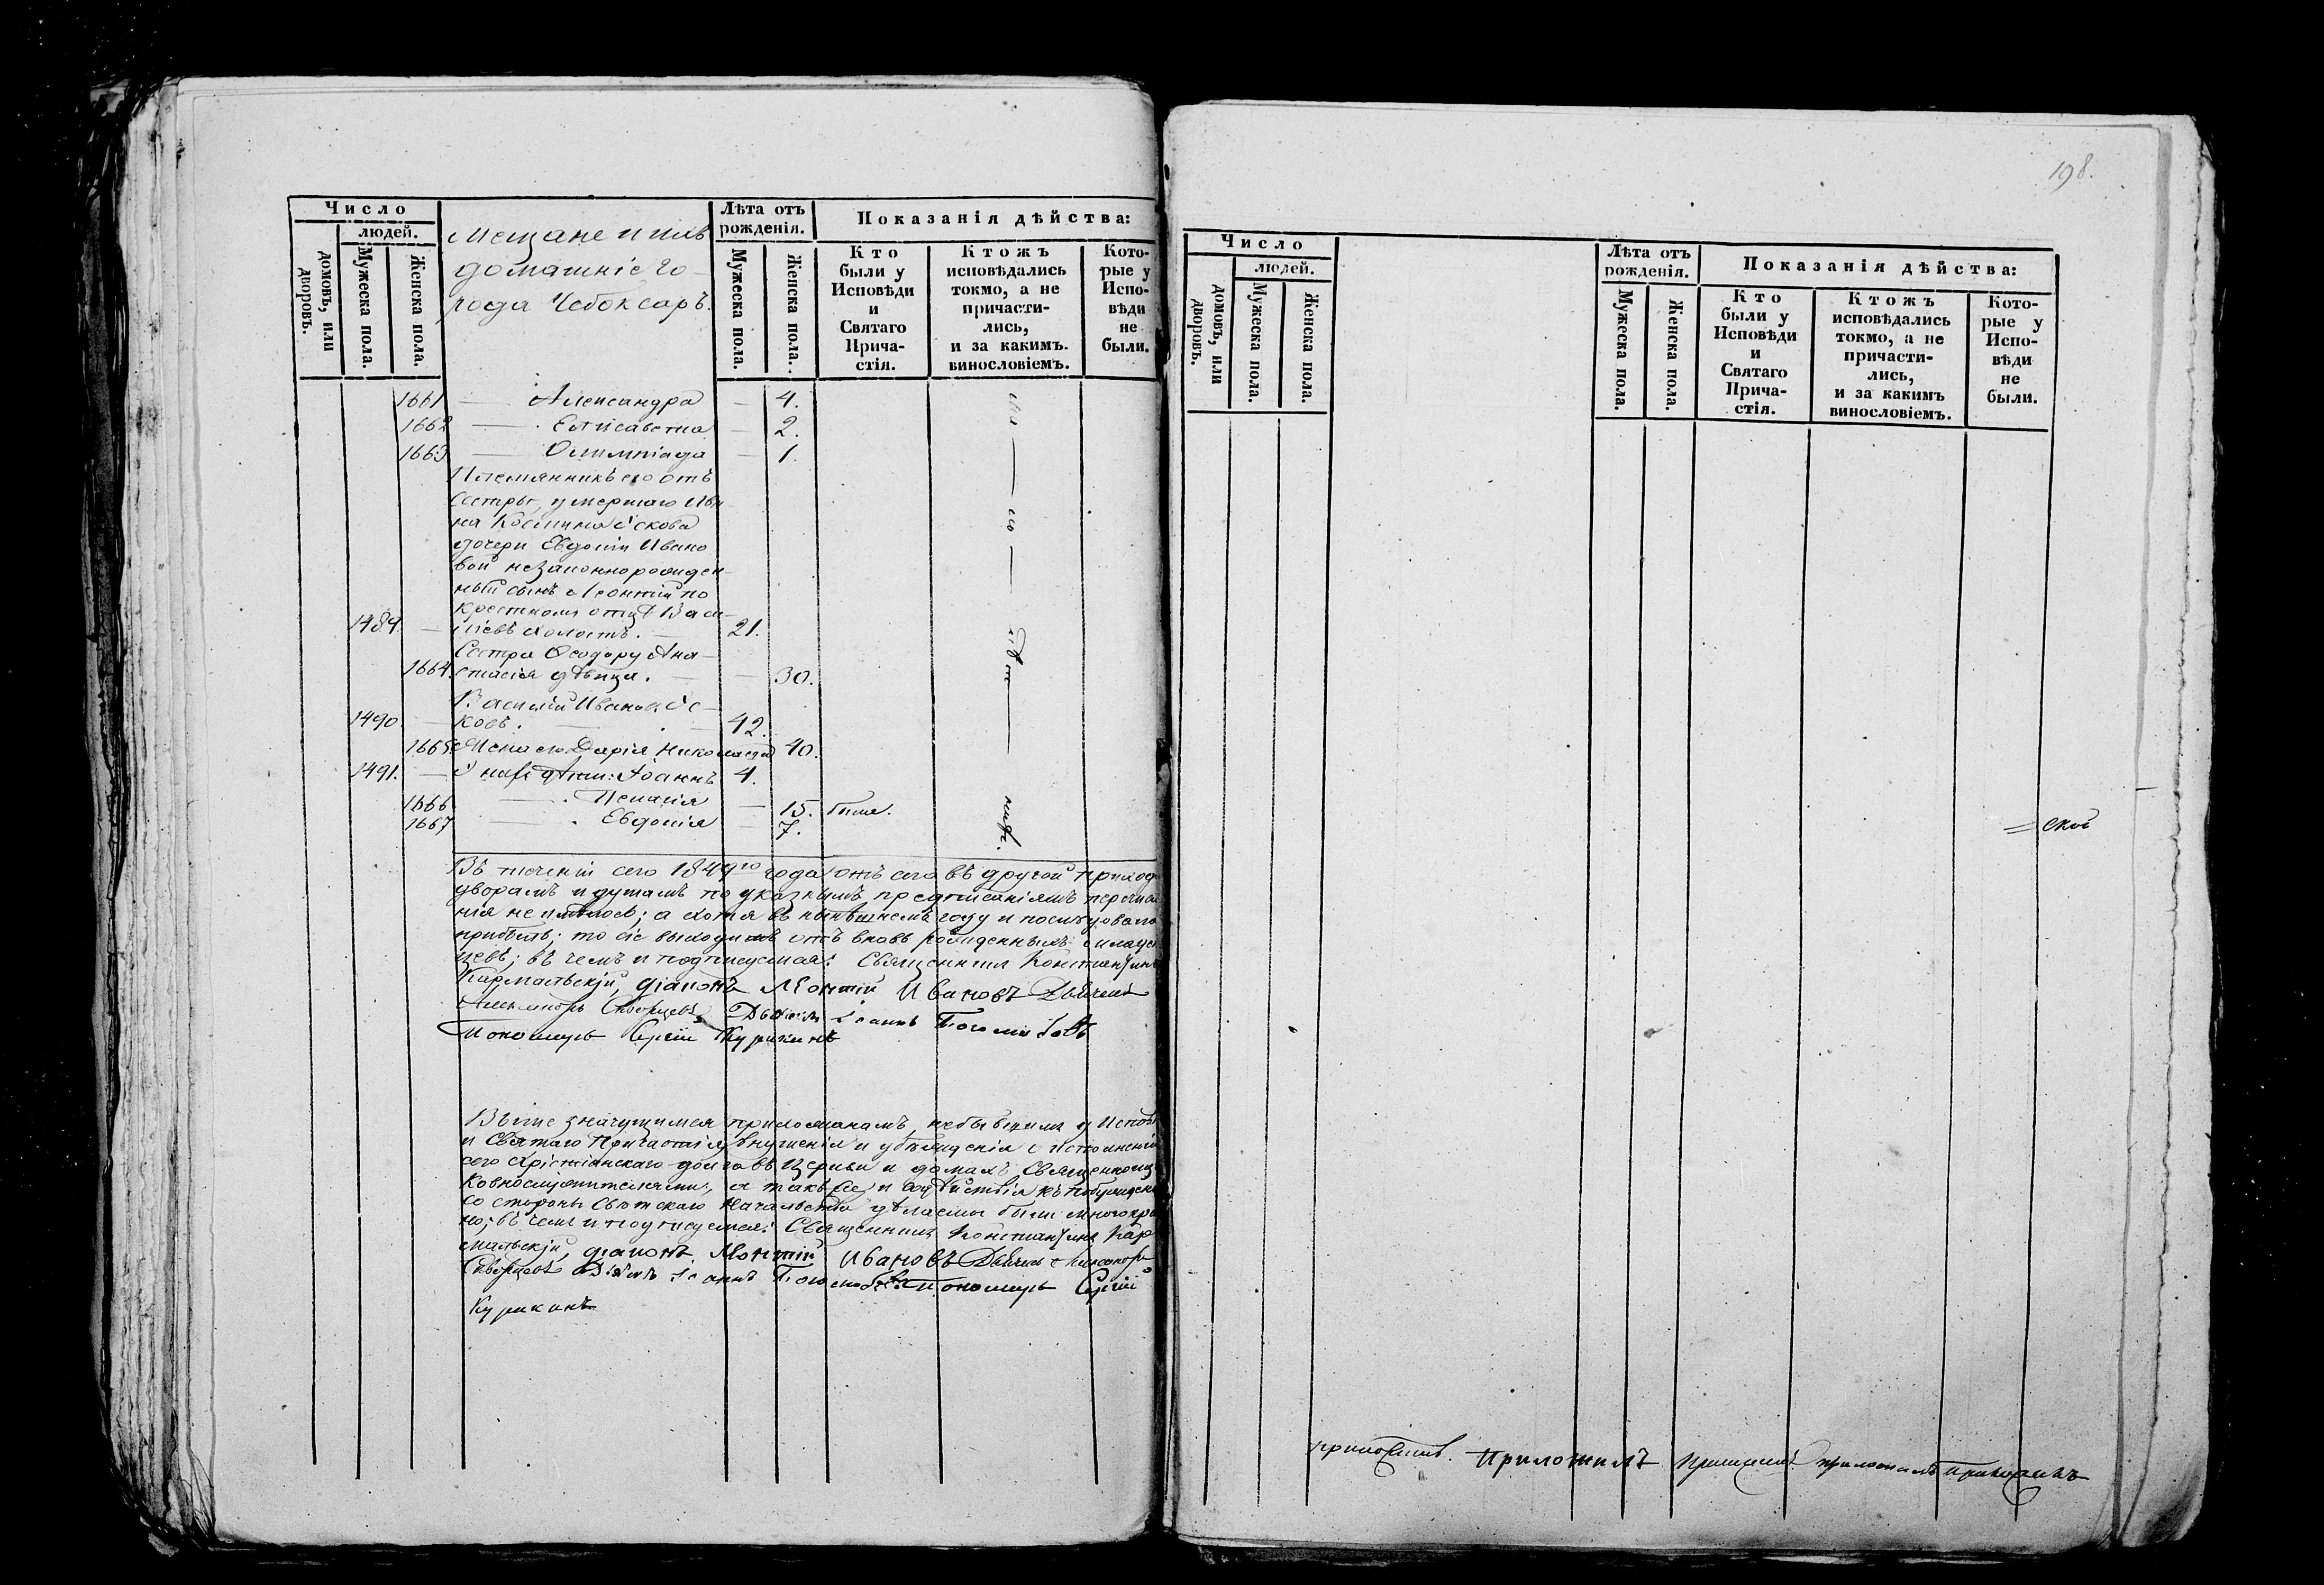 Число
людей.
домовъ, или дворовъ.
Мужеска пола.
Женска пола.
Мещане и ихъ
домашніе го-
рода Чебоксаръ.
Лѣта отъ рожденія.
Мужеска пола.
Женска пола.
Показанія дѣйства:
Кто были у Исповѣди и Святаго Прича- стія.
Ктожъ исповѣдались токмо, а не причасти- лись, и за какимъ. винословіемъ.
Кото- рые у Испо- вѣди не были.
1661 — Александра — 4.
1662 — Елисавета — 2.
1663 — Олимпіада — 1.
Племянникъ его отъ
сестры, умершаго Ива
на Косьмина
дочери Евдокіи Ивано
вой незаконнорожден-
ный сынъ Леонтій по
крестному отцу Васи-
1489. — льевъ холостъ. — 21.
Сестра Ѳеодору Ана-
1664. стасія дѣвица. — 30.
Василій Ивановъ
1490 — ковъ. — 42.
1665 Жена его Дарія Николаева 40.
1491. — У нихъ дѣти: Іоаннъ 4.
1666 — Пелагія — 15. была.
1667 — Евдокія — 7.
Въ теченіи сего 1849го года отъ сего въ другой приход
дворамъ и душамъ по указнымъ предписаніямъ перечисле
нія не имѣлось; а хотя въ нынѣшнемъ году и послѣдовала
прибыль; то сіе выходитъ отъ вновь рожденныхъ младен
цевъ; въ чемъ и подписуемся: Священникъ Константинъ
Кармальскій, діаконъ Леонтій Ивановъ Дьячекъ
Александръ Скворцевъ, Дьячекъ Іоаннъ
Пономарь Сергій Курикинъ
Выше значущимся прихожанамъ, небывшимъ у Исповѣ
и Святаго Причастія, внушенія и убѣжденія о исполненіи
сего Христіанскаго долга въ Церкви и домахъ Священноц
ковнослужителями, а такъ же и содѣйствія къ побужден
со стороны Свѣтскаго Начальства дѣлаемы были многокра
но; въ чемъ и подписуемся: Священникъ Константинъ Кар
мальскій, діаконъ Леонтій Ивановъ Дьячекъ Александръ
Скворцевъ Дьячекъ Іоаннъ Пономарь Сергій
Курикинъ
198.
Число
людей.
домовъ, или дворовъ.
Мужеска пола.
Женска пола.
Лѣта отъ рожденія.
Мужеска пола.
Женска пола.
Показанія дѣйства:
Кто были у Исповѣди и Святаго Прича- стія.
Ктожъ исповѣдались токмо, а не причасти- лись, и за какимъ винословіемъ.
Кото- рые у Испо- вѣди не были.
приложилъ. Приложилъ приложилъ приложилъ приложилъ